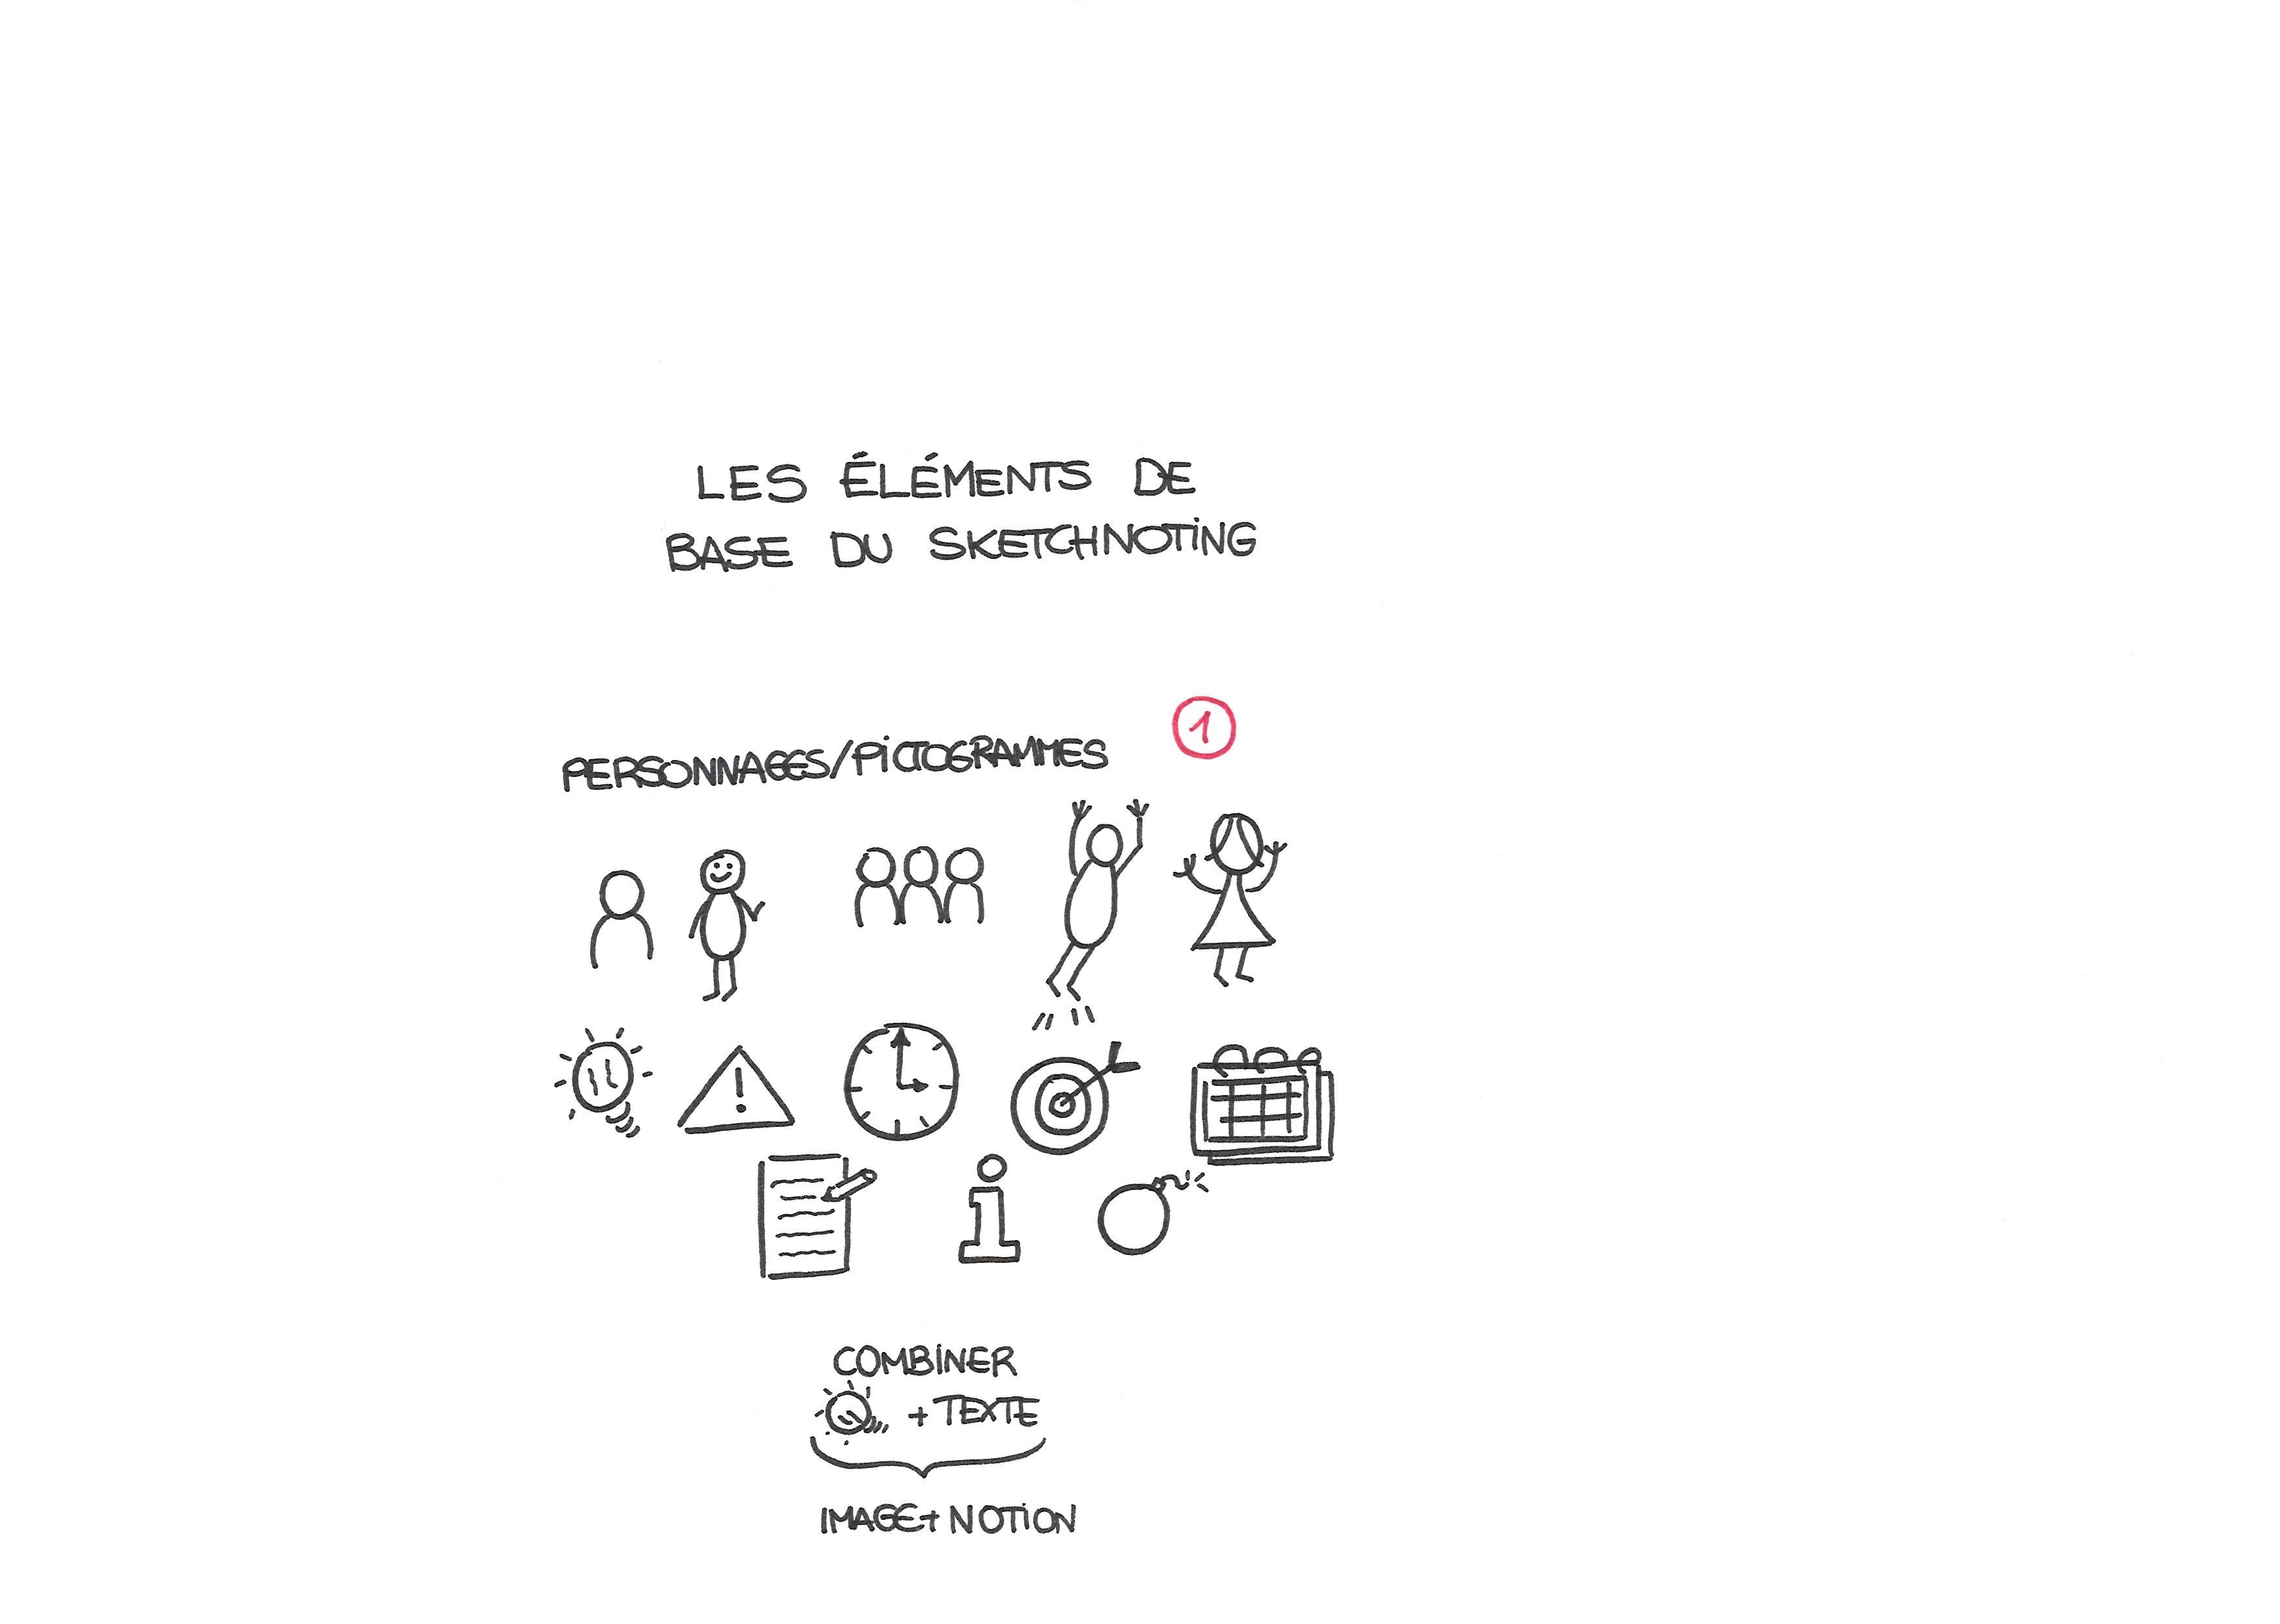 LES ÉLÉMENTS DE
BASE DU SKETCHNOTING
1
PERSONNAGES/PICTOGRAMMES
!
i
COMBINER
+ TEXTE
IMAGE + NOTION